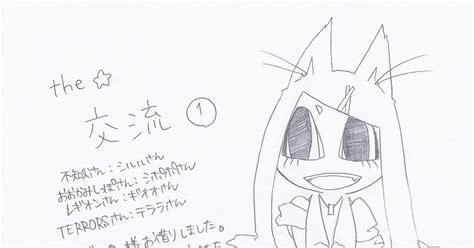 the ☆
交流 ①
不知火さん:シルルさん
おおかみしっぽさん:シポポさん
レギオンさん:ギオオさん
TERRORSさん:テララさん
様お借りしました。